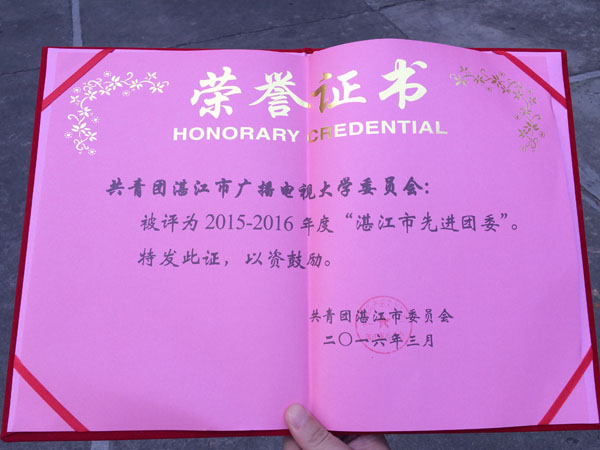 荣誉证书
HONORARY CREDENTIAL
共青团湛江市广播电视大学委员会：
被评为2015-2016年度“湛江市先进团委”。
特发此证，以资鼓励。
共青团湛江市委员会
二〇一六年三月